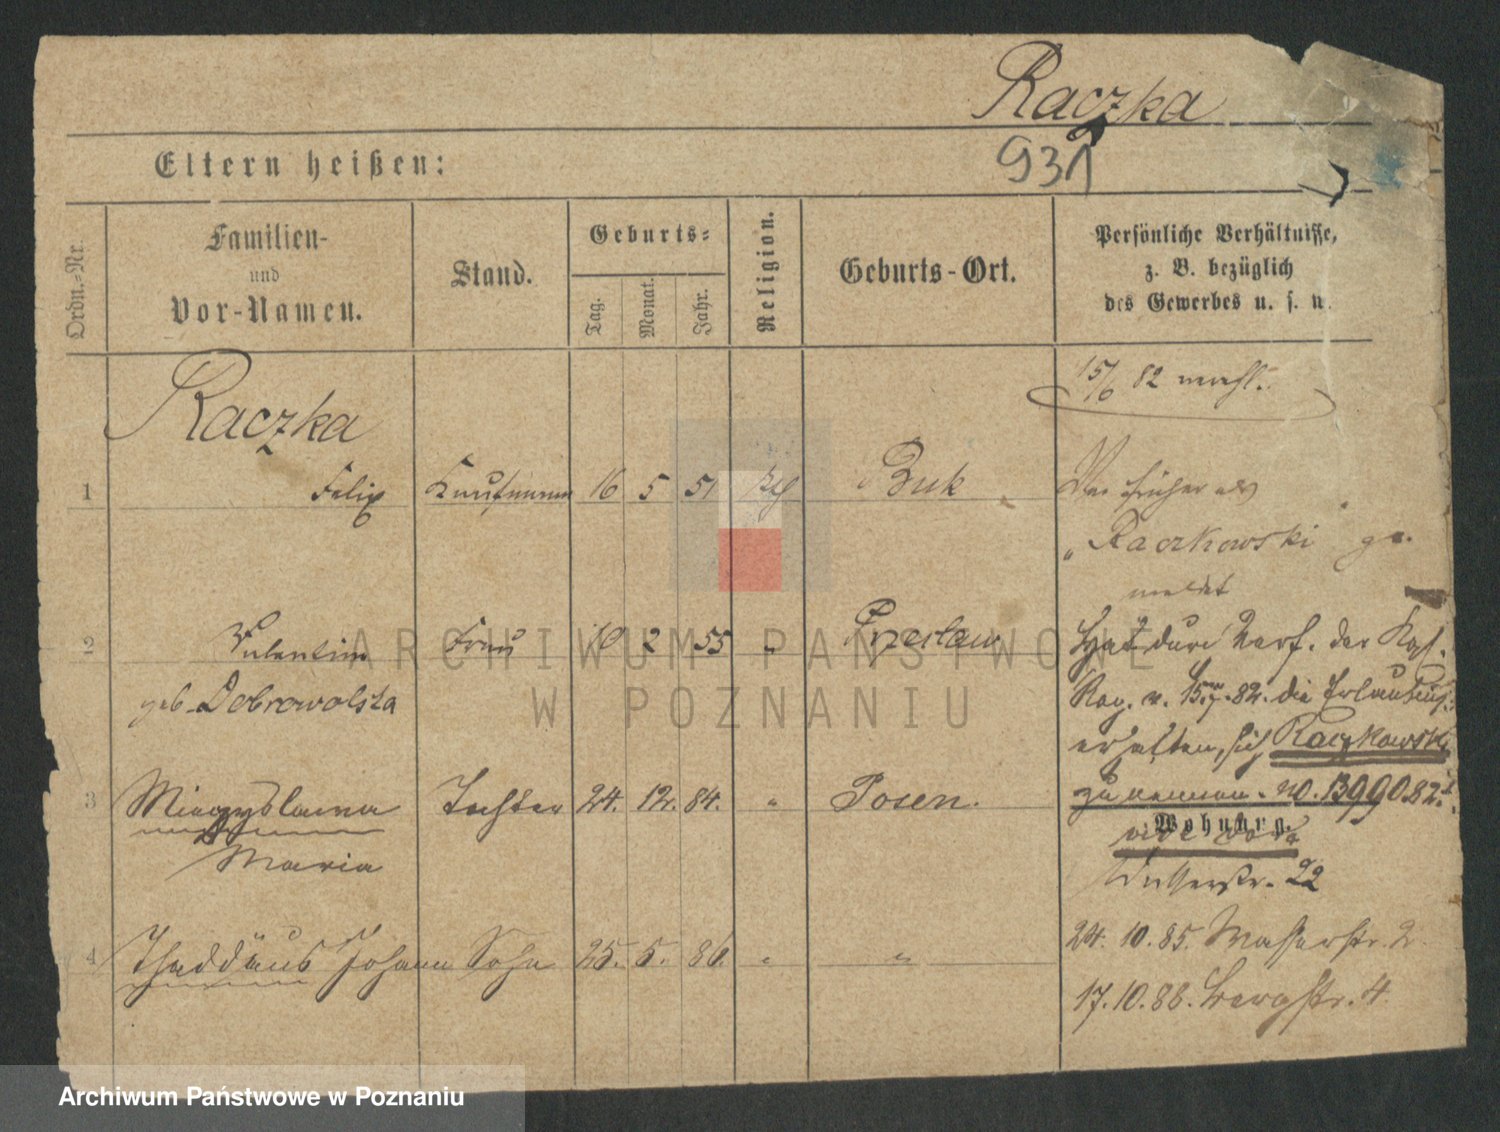 Raczka
931
Eltern heißen:
Ordn.-Nr.
Familien-
und
Vor-Namen.
Stand.
Geburts-
Tag.
Monat.
Jahr.
Religion.
Geburts-Ort.
Persönliche Verhältnisse,
z. B. bezüglich
des Gewerbes u. s. w.
15/6 82
Raczka
1 Felix Kaufmann 16 5 51 kth Buk
War früher als
„Raczkowski" ge-
meldet
2 Valentine Frau 10 2 55 "
geb. Dobrowolska
Hat durch Verf. der Kgl.
Reg. v. 15. 82. die Erlaubniß
erhalten, sich Raczkowski
zu nennen. no. 13990.82.I.
3 Mieczyslawa Tochter 24. 12. 84. " Posen.
Maria
Wohnung.
22
4 Thaddäus Johann Sohn 25. 5. 86. " "
24. 10. 85. Wasserstr. 2.
17. 10. 88. Bergstr. 4.
ARCHIWUM PAŃSTWOWE
W POZNANIU
Archiwum Państwowe w Poznaniu